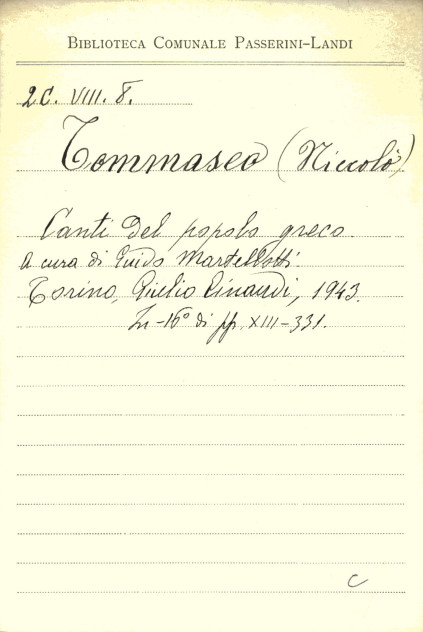 BIBLIOTECA COMUNALE PASSERINI-LANDI
2C. VIII. 8.
Tommaseo (Niccolò)
Canti del popolo greco.
A cura di Guido Martellotti.
Torino, Giulio Einaudi, 1943.
In-16° di pp. XIII-331.
C